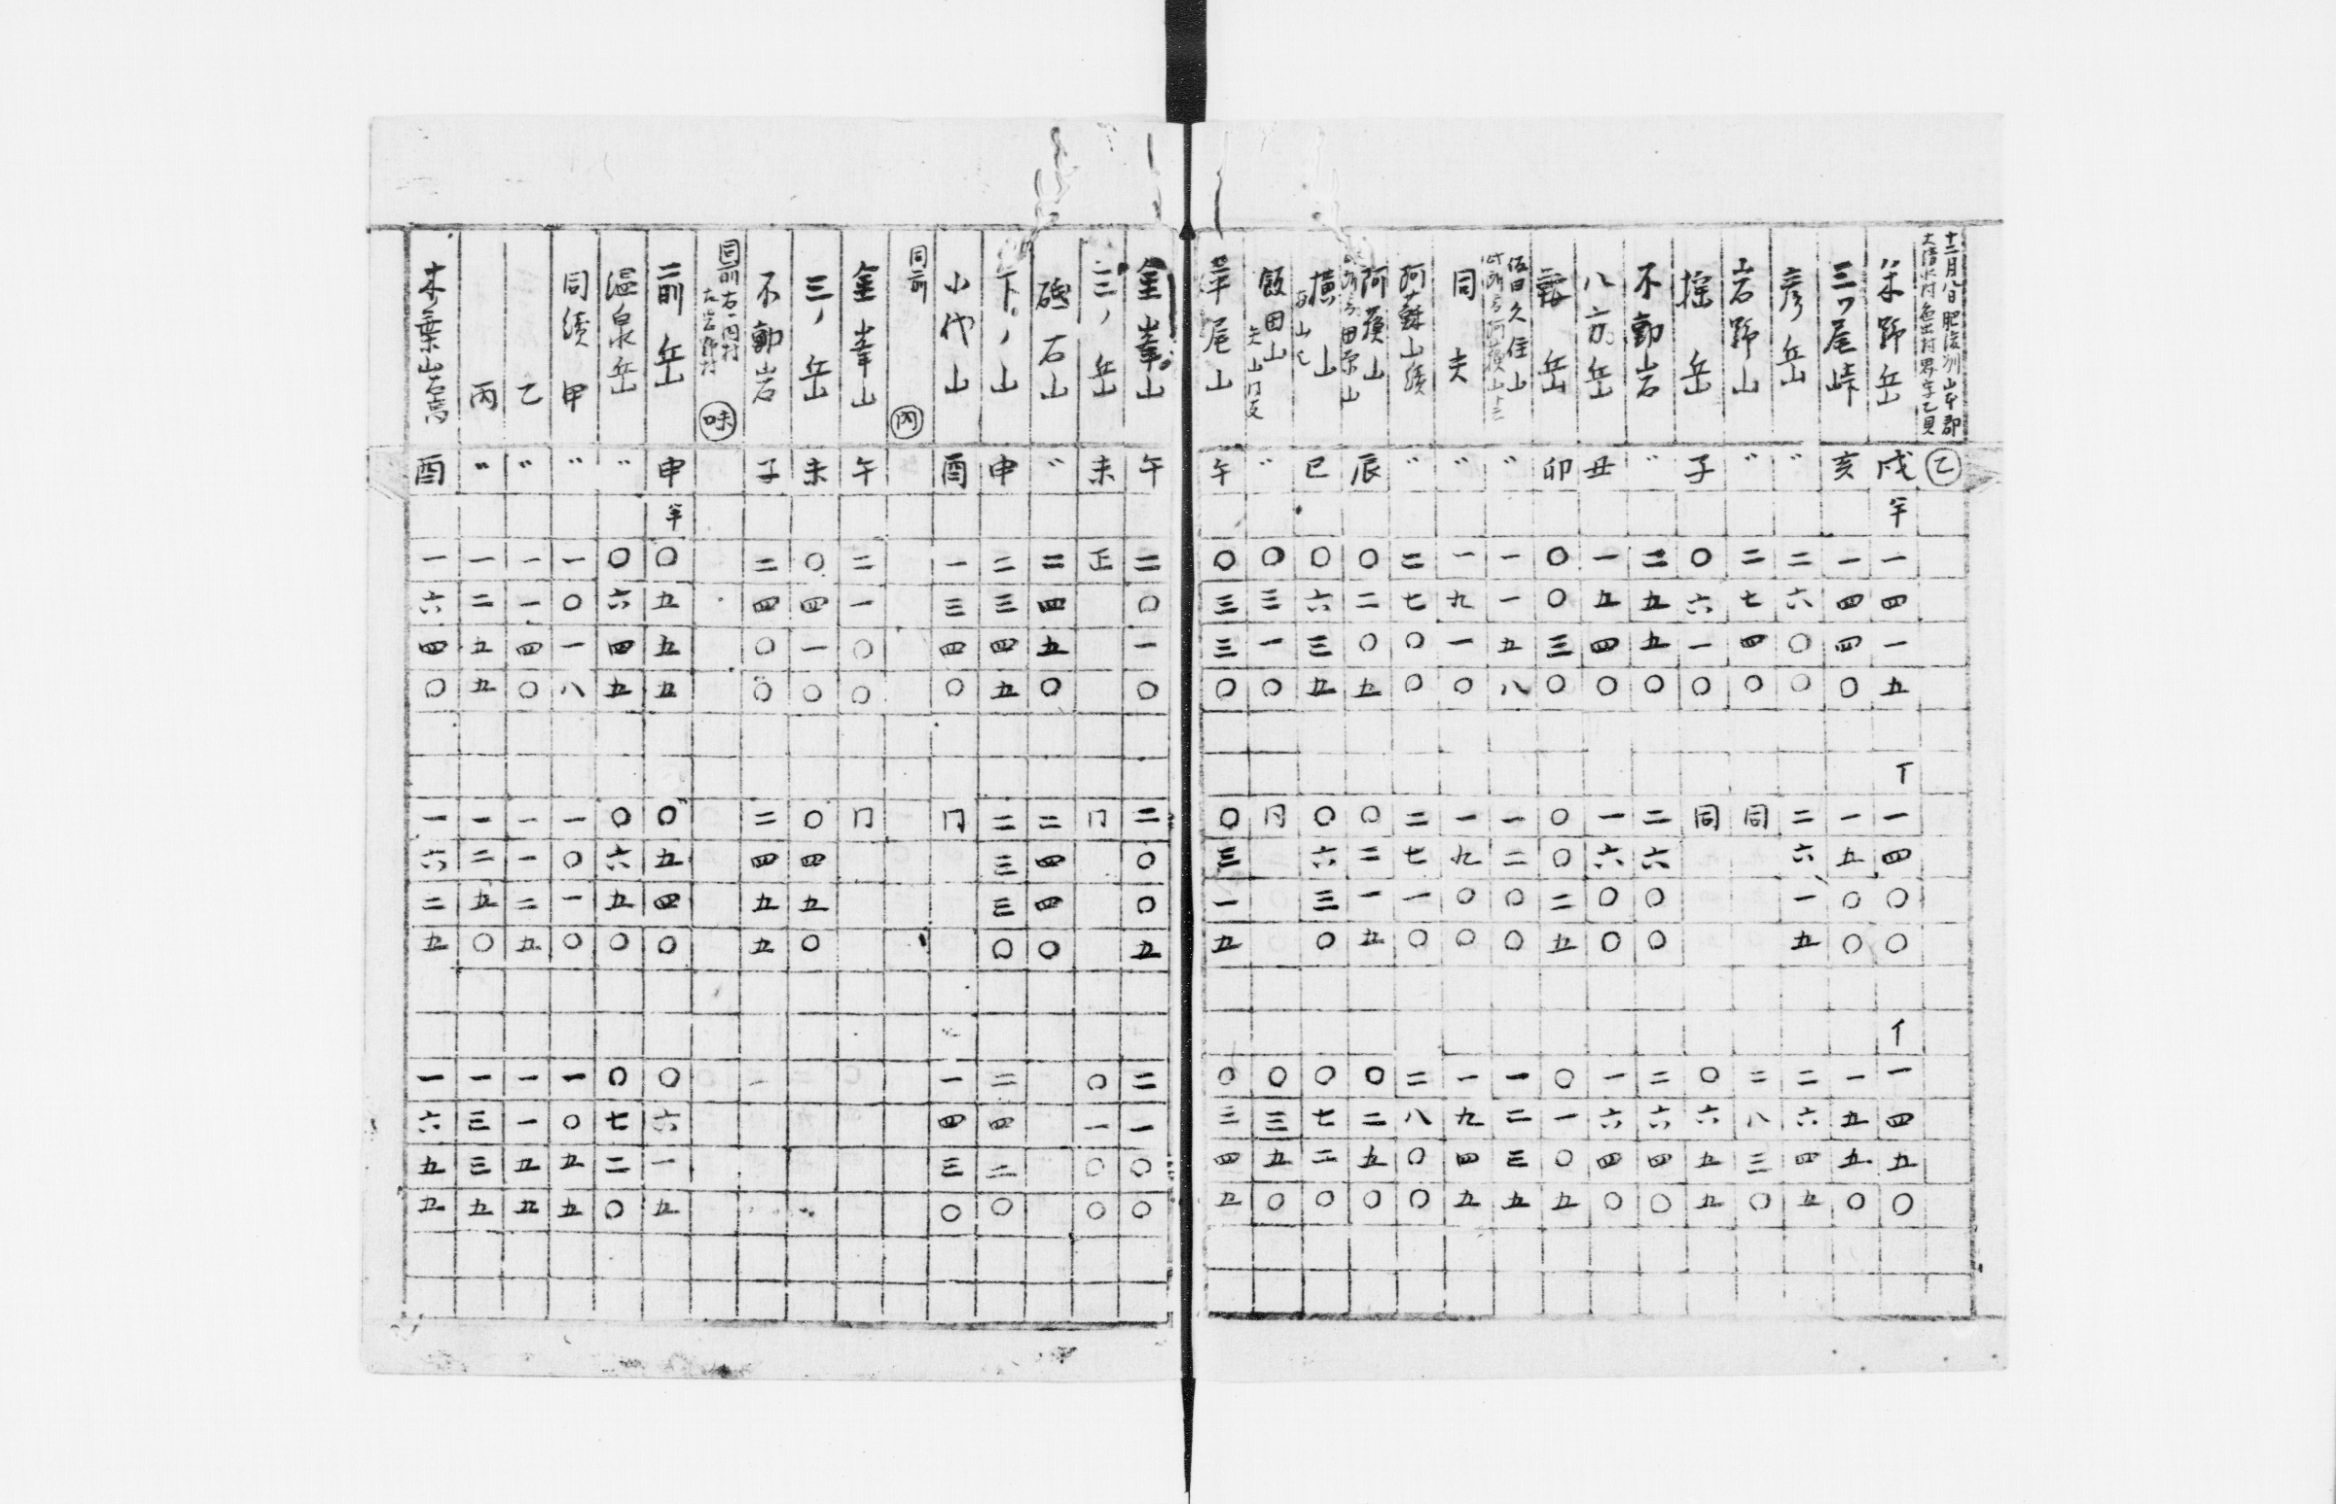 十二月八日肥後州山本郡
大清水村色出村界字乙貝
乙
米野岳 戌 半 一四一五 丅 一四〇〇 亻 一四五〇
三ツ尾峠 亥 一四四〇 一五〇〇 一五五〇
彦岳 〃 二六〇〇 二六一五 二六四五
岩野山 〃 二七四〇 同 二八三〇
揺岳 子 〇六一〇 同 〇六五五
不動岩 〃 二五五〇 二六〇〇 二六四〇
八方岳 丑 一五四〇 一六〇〇 一六四〇
岳 卯 〇〇三〇 〇〇二五 〇一〇五
久住山
〃 一一五八 一二〇〇 一二三五
同夫 〃 一九一〇 一九〇〇 一九四五
阿蘇山績 〃 二七〇〇 二七一〇 二八〇〇
阿蘓山 辰 〇二〇五 〇二一五 〇二五〇
田原山
横山 巳 〇六三五 〇六三〇 〇七二〇
飯田山 〃 〇三一〇 同 〇三五〇
尾山 午 〇三三〇 〇三一五 〇三四五
金峯山 午 二〇一〇 二〇〇五 二一〇〇
二ノ岳 未 正 同 〇一〇〇
砥石山 〃 二四五〇 二四四〇
下ノ山 申 二三四五 二三三〇 二四二〇
小代山 酉 一三四〇 同 一四三〇
同前 丙
金峯山 午 二一〇〇 同
三ノ岳 未 〇四一〇 〇四五〇
不動岩 子 二四〇〇 二四五五
同前右一円村
味
二前岳 申 半 〇五五五 〇五四〇 〇六一五
温泉岳 〃 〇六四五 〇六五〇 〇七二〇
同績 甲 〃 一〇一八 一〇一〇 一〇五五
乙 〃 一一四〇 一一二五 一一五五
丙 〃 一二五五 一二五〇 一三三五
木葉山 酉 一六四〇 一六二五 一六五五